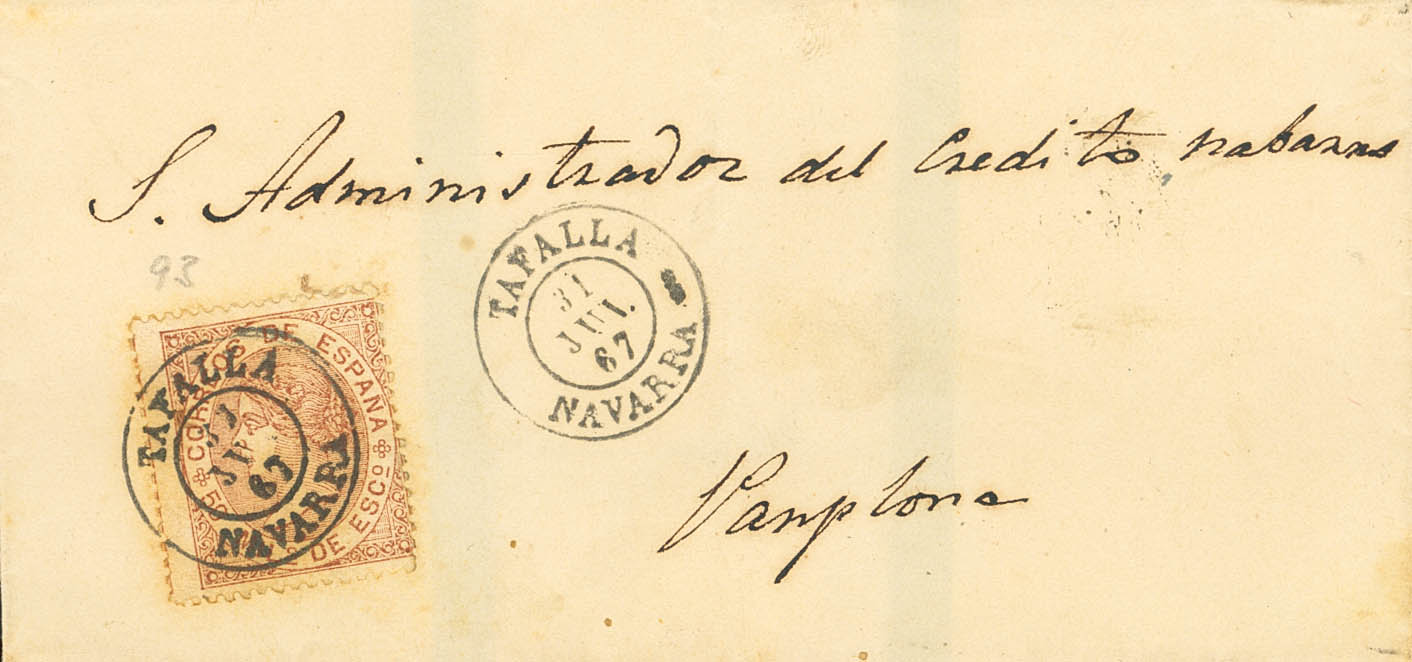 S. Administrador del Credito nabarro
TAFALLA
31
JUL.
67
NAVARRA
93
CORREOS DE ESPAÑA
5 DE ESCO
TAFALLA
31
67
NAVARRA
Panplona